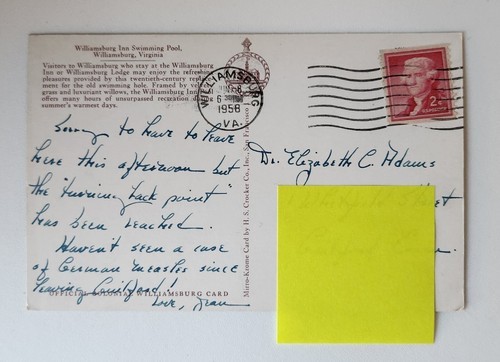 Williamsburg Inn Swimming Pool,
Williamsburg, Virginia
Visitors to Williamsburg who stay at the Williamsburg
Inn or Williamsburg Lodge may enjoy the refreshing
pleasures provided by this twentieth-century replace-
ment for the old swimming hole. Framed by velvet
grass and luxuriant willows, the Williamsburg Inn
offers many hours of unsurpassed recreation
summer's warmest days.
Sorry to have to leave
here this afternoon but
the "turning back point"
has been reached.
Haven't seen a case
of German measles since
leaving Guilford!
Love, Jean
OFFICIAL COLONIAL WILLIAMSBURG CARD
Micro-Krome Card by H. S. Crocker Co., Inc., San Francisco 1
WILLIAMSBURG
6
1958
VA.
2¢
Dr. Elizabeth C. Adams